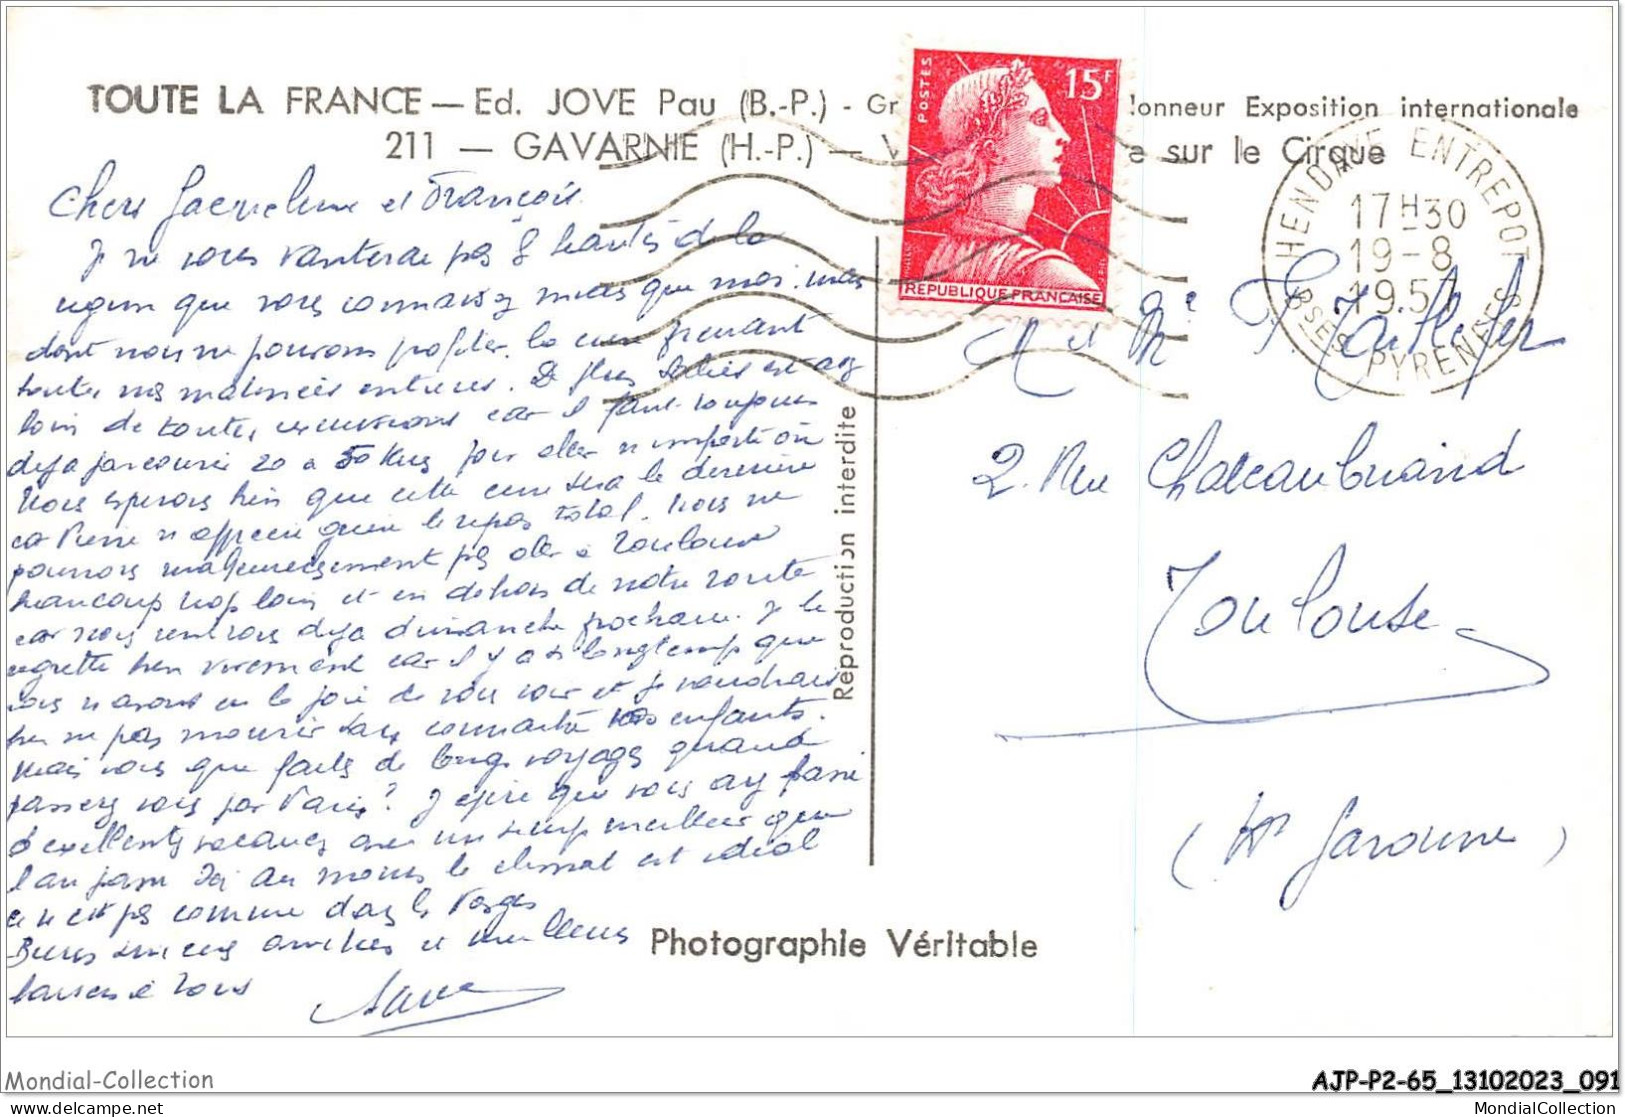 TOUTE LA FRANCE — Ed. JOVE Pau (B.-P.) - Gr onneur Exposition internationale
211 — GAVARNIE (H.-P.) — V e sur le Cirque
POSTES
15F
REPUBLIQUE FRANÇAISE
HENDAYE ENTREPOT
17H30
19-8
195
BSES PYRENEES
Chers Jacqueline et François
Je ne vous vanterai pas les beautés de la
région que vous connaissez mieux que moi. mais
dont nous ne pouvons profiter. la cure prenant
toutes nos matinées entières. De plus est assez
loin de toutes excursions car il faut toujours
déjà parcourir 20 à 50 kms pour aller n'importe où
Nous espérons bien que cette cure sera la dernière
car Pierre n'apprécie que le repos total. Nous ne
pourrons malheureusement pas aller à Toulouse
beaucoup trop loin et en dehors de notre route
car nous rentrons déjà dimanche prochain. Je le
regrette bien vivement car il y a si longtemps que
nous n'avons eu la joie de vous voir et je voudrais
bien ne pas mourir sans connaître vos enfants.
Mais vous que faites de longs voyages quand
passerez vous par Paris? J'espère que vous avez passé
d'excellentes vacances avec un temps meilleur que
l'an passé Ici au moins le climat est idéal
ce n'est pas comme dans les Vosges
amitiés et meilleurs
baisers à vous
M et Me
2. Rue Chateaubriand
Toulouse
(Hte Garonne)
Reproduction interdite
Photographie Véritable
Mondial-Collection
AJP-P2-65_13102023_091
delcampe.net
MondialCollection